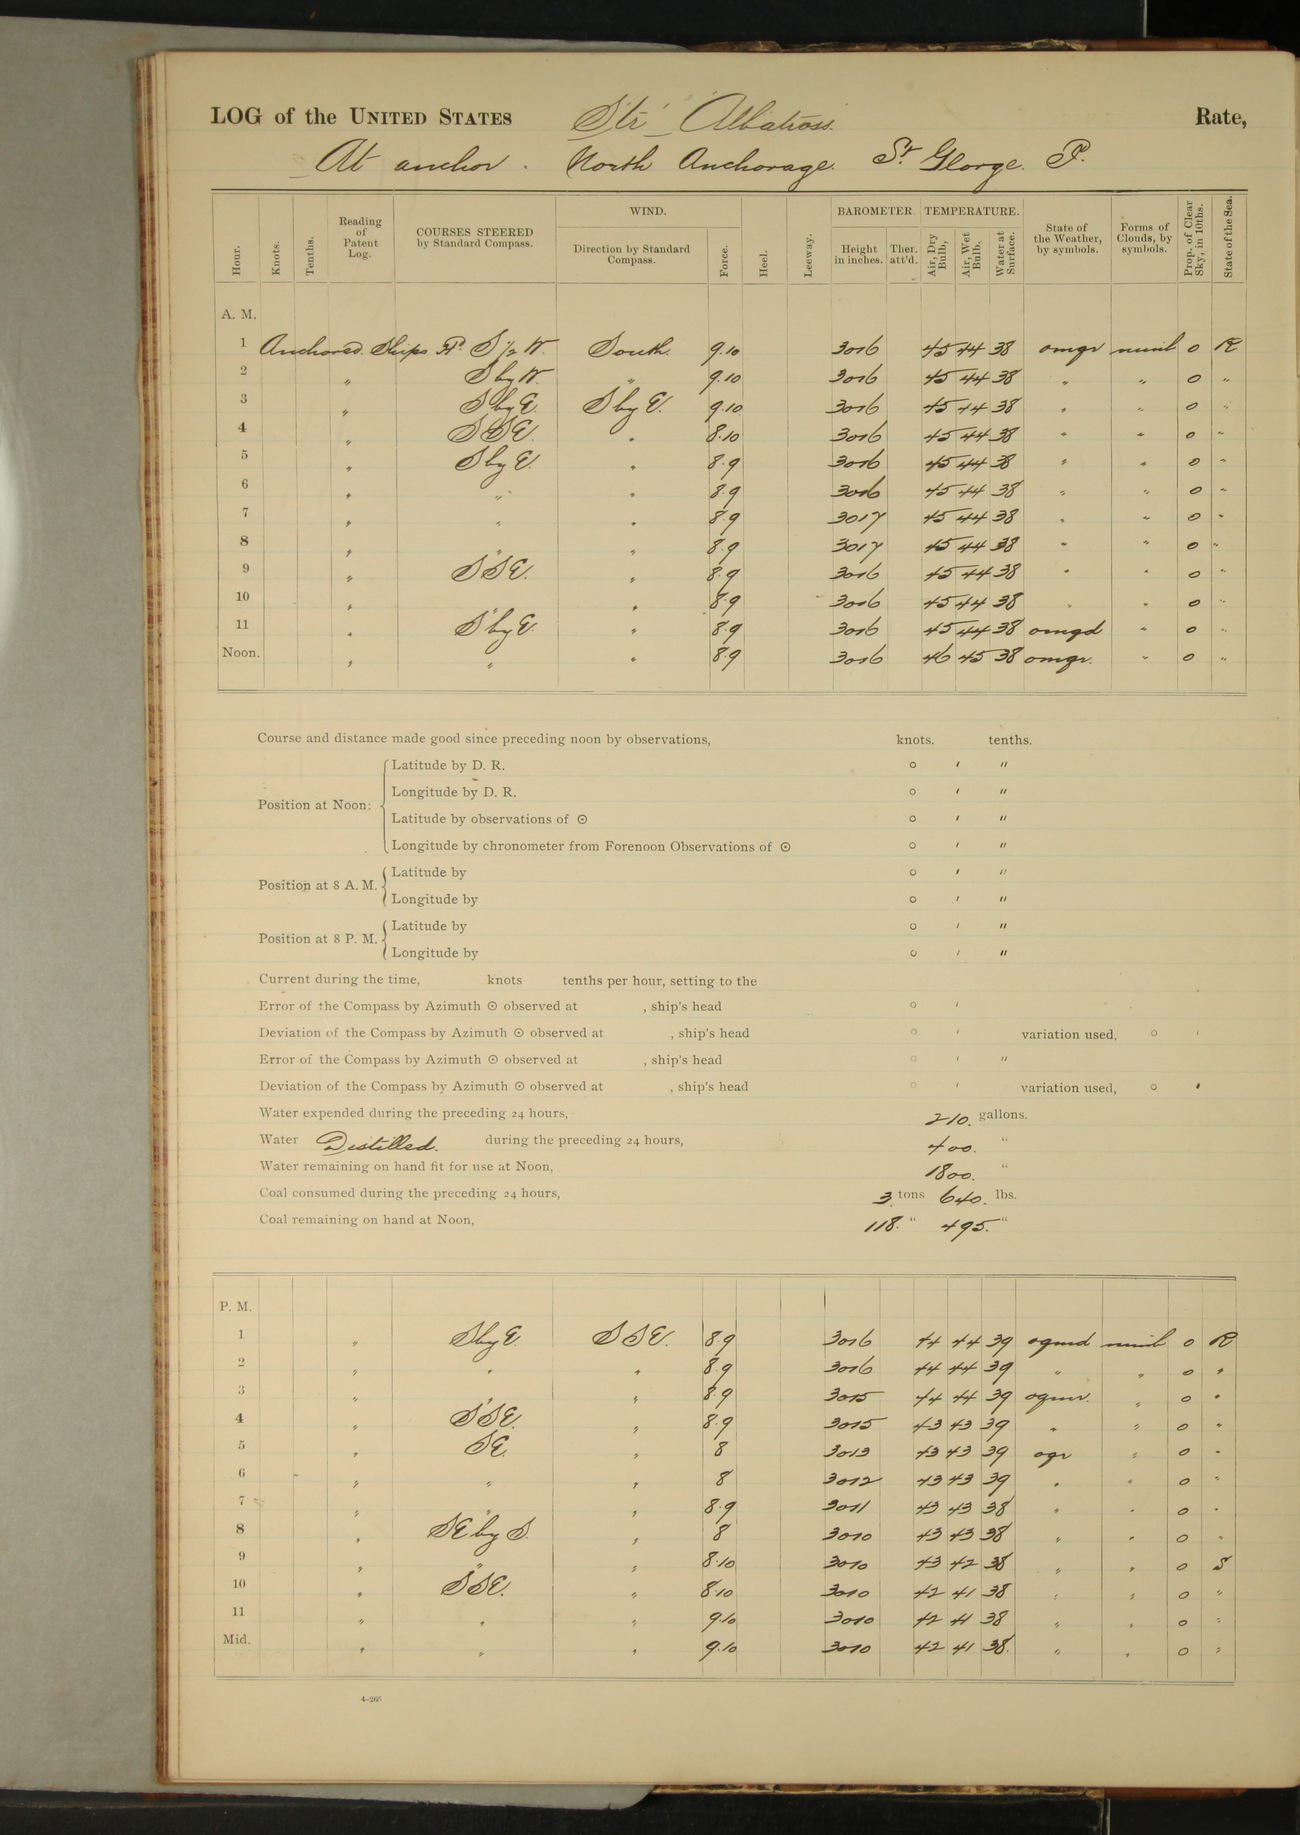 LOG of the UNITED STATES Str "Albatross. Rate,
At anchor. North Anchorage. St. George. I.
WIND. BAROMETER. TEMPERATURE.
Hour. Knots. Tenths. Reading of Patent Log. COURSES STEERED by Standard Compass. Direction by Standard Compass. Force. Heel. Leeway. Height in inches. Ther. att'd. Air, Dry Bulb, Air, Wet Bulb, Water at Surface. State of the Weather, by symbols. Forms of Clouds, by symbols. Prop. of Clear Sky, in 10ths. State of the Sea.
A. M.
1 Anchored. Ships Hd. S ½ W. South. 9.10 3016 45 44 38 omgr nimb 0 R
2 " S by W. " 9.10 3016 45 44 38 " " 0 "
3 " S by E. S by E. 9.10 3016 45 44 38 " " 0 "
4 " SSE. " 8.10 3016 45 44 38 " " 0 "
5 " S by E. " 8.9 3016 45 44 38 " " 0 "
6 " " " 8.9 3016 45 44 38 " " 0 "
7 " " " 8.9 3017 45 44 38 " " 0 "
8 " " " 8.9 3017 45 44 38 " " 0 "
9 " SSE. " 8.9 3016 45 44 38 " " 0 "
10 " " " 8.9 3016 45 44 38 " " 0 "
11 " S by E. " 8.9 3016 45 44 38 omgd " 0 "
Noon. " " " 8.9 3016 46 45 38 omgr. " 0 "
Course and distance made good since preceding noon by observations, knots. tenths.
Position at Noon: Latitude by D. R. ° ′ ″
Longitude by D. R. ° ′ ″
Latitude by observations of ⊙ ° ′ ″
Longitude by chronometer from Forenoon Observations of ⊙ ° ′ ″
Position at 8 A. M. Latitude by ° ′ ″
Longitude by ° ′ ″
Position at 8 P. M. Latitude by ° ′ ″
Longitude by ° ′ ″
Current during the time, knots tenths per hour, setting to the
Error of the Compass by Azimuth ⊙ observed at , ship's head ° ′
Deviation of the Compass by Azimuth ⊙ observed at , ship's head ° ′ variation used, ° ′
Error of the Compass by Azimuth ⊙ observed at , ship's head ° ′ ″
Deviation of the Compass by Azimuth ⊙ observed at , ship's head ° ′ variation used, ° ′
Water expended during the preceding 24 hours, 210. gallons.
Water Distilled. during the preceding 24 hours, 400. "
Water remaining on hand fit for use at Noon, 1800. "
Coal consumed during the preceding 24 hours, 3. tons 640. lbs.
Coal remaining on hand at Noon, 118. " 495. "
P. M.
1 " S by E SSE. 8.9 3016 44 44 39 ogmd nimb 0 R
2 " " " 8.9 3016 44 44 39 " " 0 "
3 " " " 8.9 3015 44 44 39 ogmr. " 0 "
4 " SSE. " 8.9 3015 43 43 39 " " 0 "
5 " SE. " 8 3013 43 43 39 ogr " 0 "
6 " " " 8 3012 43 43 39 " " 0 "
7 " " " 8.9 3011 43 43 38 " " 0 "
8 " SE by S. " 8 3010 43 43 38 " " 0 "
9 " " " 8.10 3010 43 42 38 " " 0 S
10 " SSE. " 8.10 3010 42 41 38 " " 0 "
11 " " " 9.10 3010 42 41 38 " " 0 "
Mid. " " " 9.10 3010 42 41 38. " " 0 "
4-265